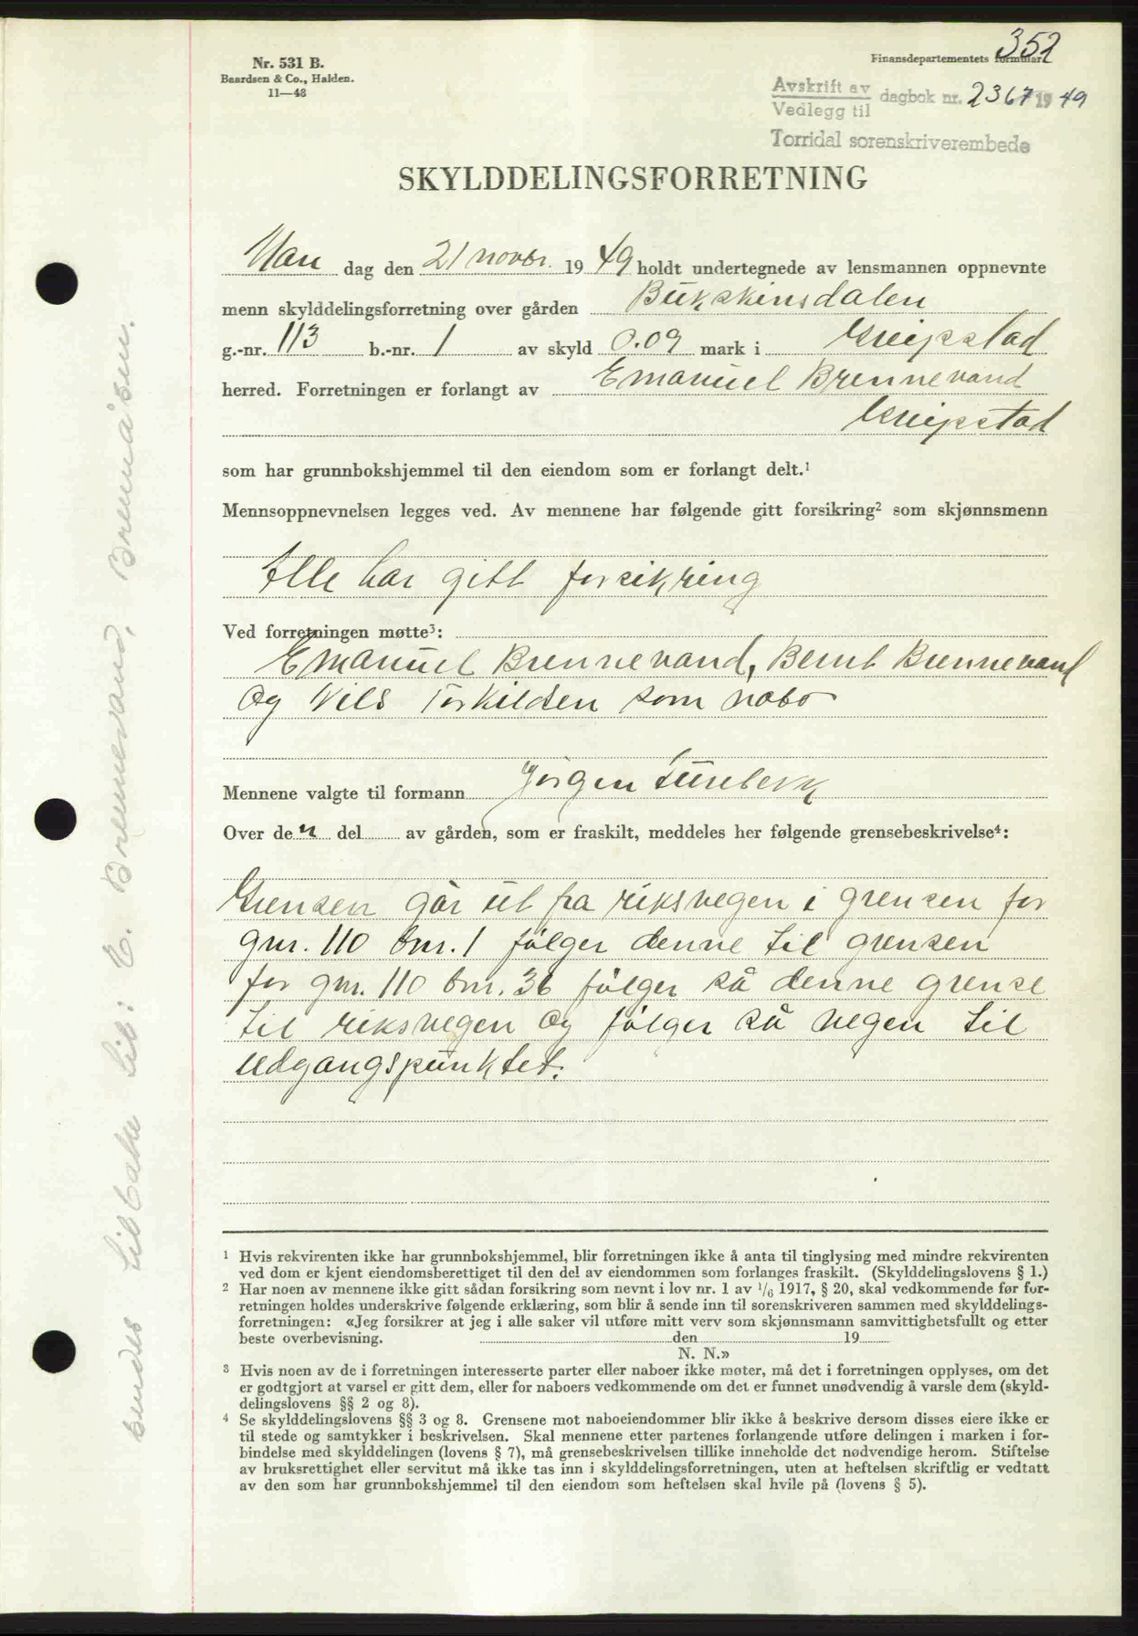 352
Nr. 531 B.
Baardsen & Co., Halden.
11—48
Finansdepartementets formular
Avskrift av
Vedlegg til
dagbok nr. 2367 1949
Torridal sorenskriverembede
SKYLDDELINGSFORRETNING
Man dag den 21 novbr. 1949 holdt undertegnede av lensmannen oppnevnte
menn skylddelingsforretning over gården Bukskinsdalen
g.-nr. 113 b.-nr. 1 av skyld 0.09 mark i Greipstad
herred. Forretningen er forlangt av Emanuel Brennevand
Greipstad
som har grunnbokshjemmel til den eiendom som er forlangt delt.¹
Mennsoppnevnelsen legges ved. Av mennene har følgende gitt forsikring² som skjønnsmenn
Alle har gitt forsikring
Ved forretningen møtte³:
Emanuel Brennevand, Bernt Brennevand
og Nils Torkildsen som nabo
Mennene valgte til formann Jörgen
Over den del av gården, som er fraskilt, meddeles her følgende grensebeskrivelse⁴:
Grensen går ut fra riksvegen i grensen for
gnr. 110 bnr. 1 følger denne til grensen
for gnr. 110 bnr. 36 følger så denne grense
til riksvegen og følger så vegen til
udgangspunktet.
¹ Hvis rekvirenten ikke har grunnbokshjemmel, blir forretningen ikke å anta til tinglysing med mindre rekvirenten
ved dom er kjent eiendomsberettiget til den del av eiendommen som forlanges fraskilt. (Skylddelingslovens § 1.)
² Har noen av mennene ikke gitt sådan forsikring som nevnt i lov nr. 1 av 1/6 1917, § 20, skal vedkommende før for-
retningen holdes underskrive følgende erklæring, som blir å sende inn til sorenskriveren sammen med skylddelings-
forretningen: «Jeg forsikrer at jeg i alle saker vil utføre mitt verv som skjønnsmann samvittighetsfullt og etter
beste overbevisning. den 19
N. N.»
³ Hvis noen av de i forretningen interesserte parter eller naboer ikke møter, må det i forretningen opplyses, om det
er godtgjort at varsel er gitt dem, eller for naboers vedkommende om det er funnet unødvendig å varsle dem (skyld-
delingslovens §§ 2 og 8).
⁴ Se skylddelingslovens §§ 3 og 8. Grensene mot naboeiendommer blir ikke å beskrive dersom disses eiere ikke er
til stede og samtykker i beskrivelsen. Skal mennene etter partenes forlangende utføre delingen i marken i for-
bindelse med skylddelingen (lovens § 7), må grensebeskrivelsen tillike inneholde det nødvendige herom. Stiftelse
av bruksrettighet eller servitut må ikke tas inn i skylddelingsforretningen, uten at heftelsen skriftlig er vedtatt
av den som har grunnbokshjemmel til den eiendom som heftelsen skal hvile på (lovens § 5).
Sendes tilbake til: E. Brennevand, Brennåsen.